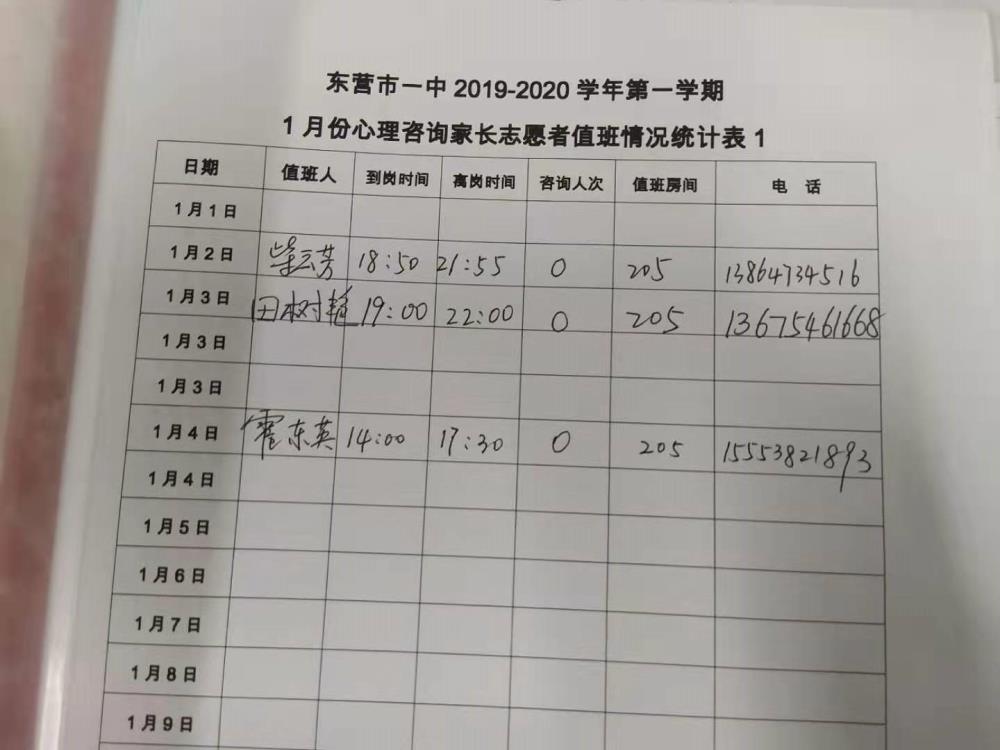 东营市一中 2019-2020 学年第一学期
1月份心理咨询家长志愿者值班情况统计表 1
日期 值班人 到岗时间 离岗时间 咨询人次 值班房间 电 话
1月1日
1月2日 柴云芳 18:50 21:55 0 205 13864734516
1月3日 田树艳 19:00 22:00 0 205 13675461668
1月3日
1月3日
1月4日 霍东英 14:00 17:30 0 205 15553821893
1月4日
1月5日
1月6日
1月7日
1月8日
1月9日